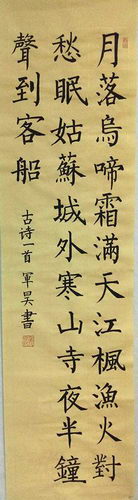 月落烏啼霜滿天江楓漁火對
愁眠姑蘇城外寒山寺夜半鐘
聲到客船
古诗一首 軍昊書